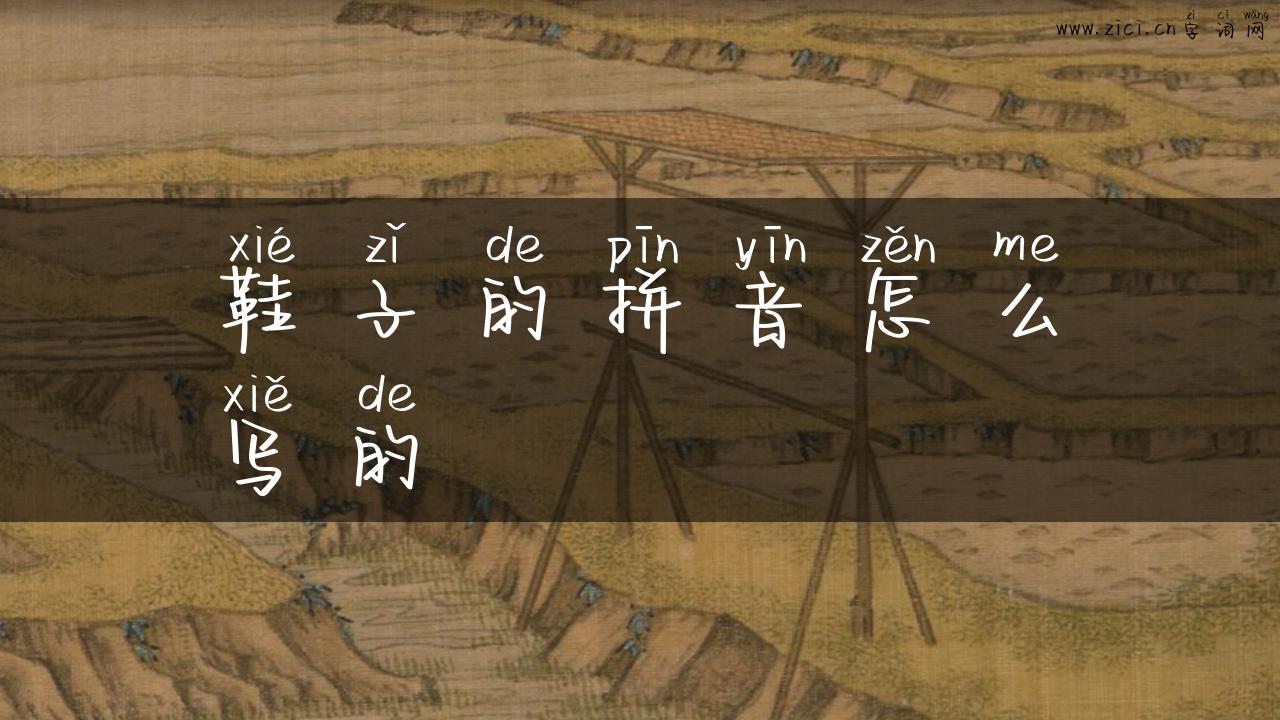 zì cí wǎng
www.zici.cn 字 词 网
xié zǐ de pīn yīn zěn me
鞋 子 的 拼 音 怎 么
xiě de
写 的